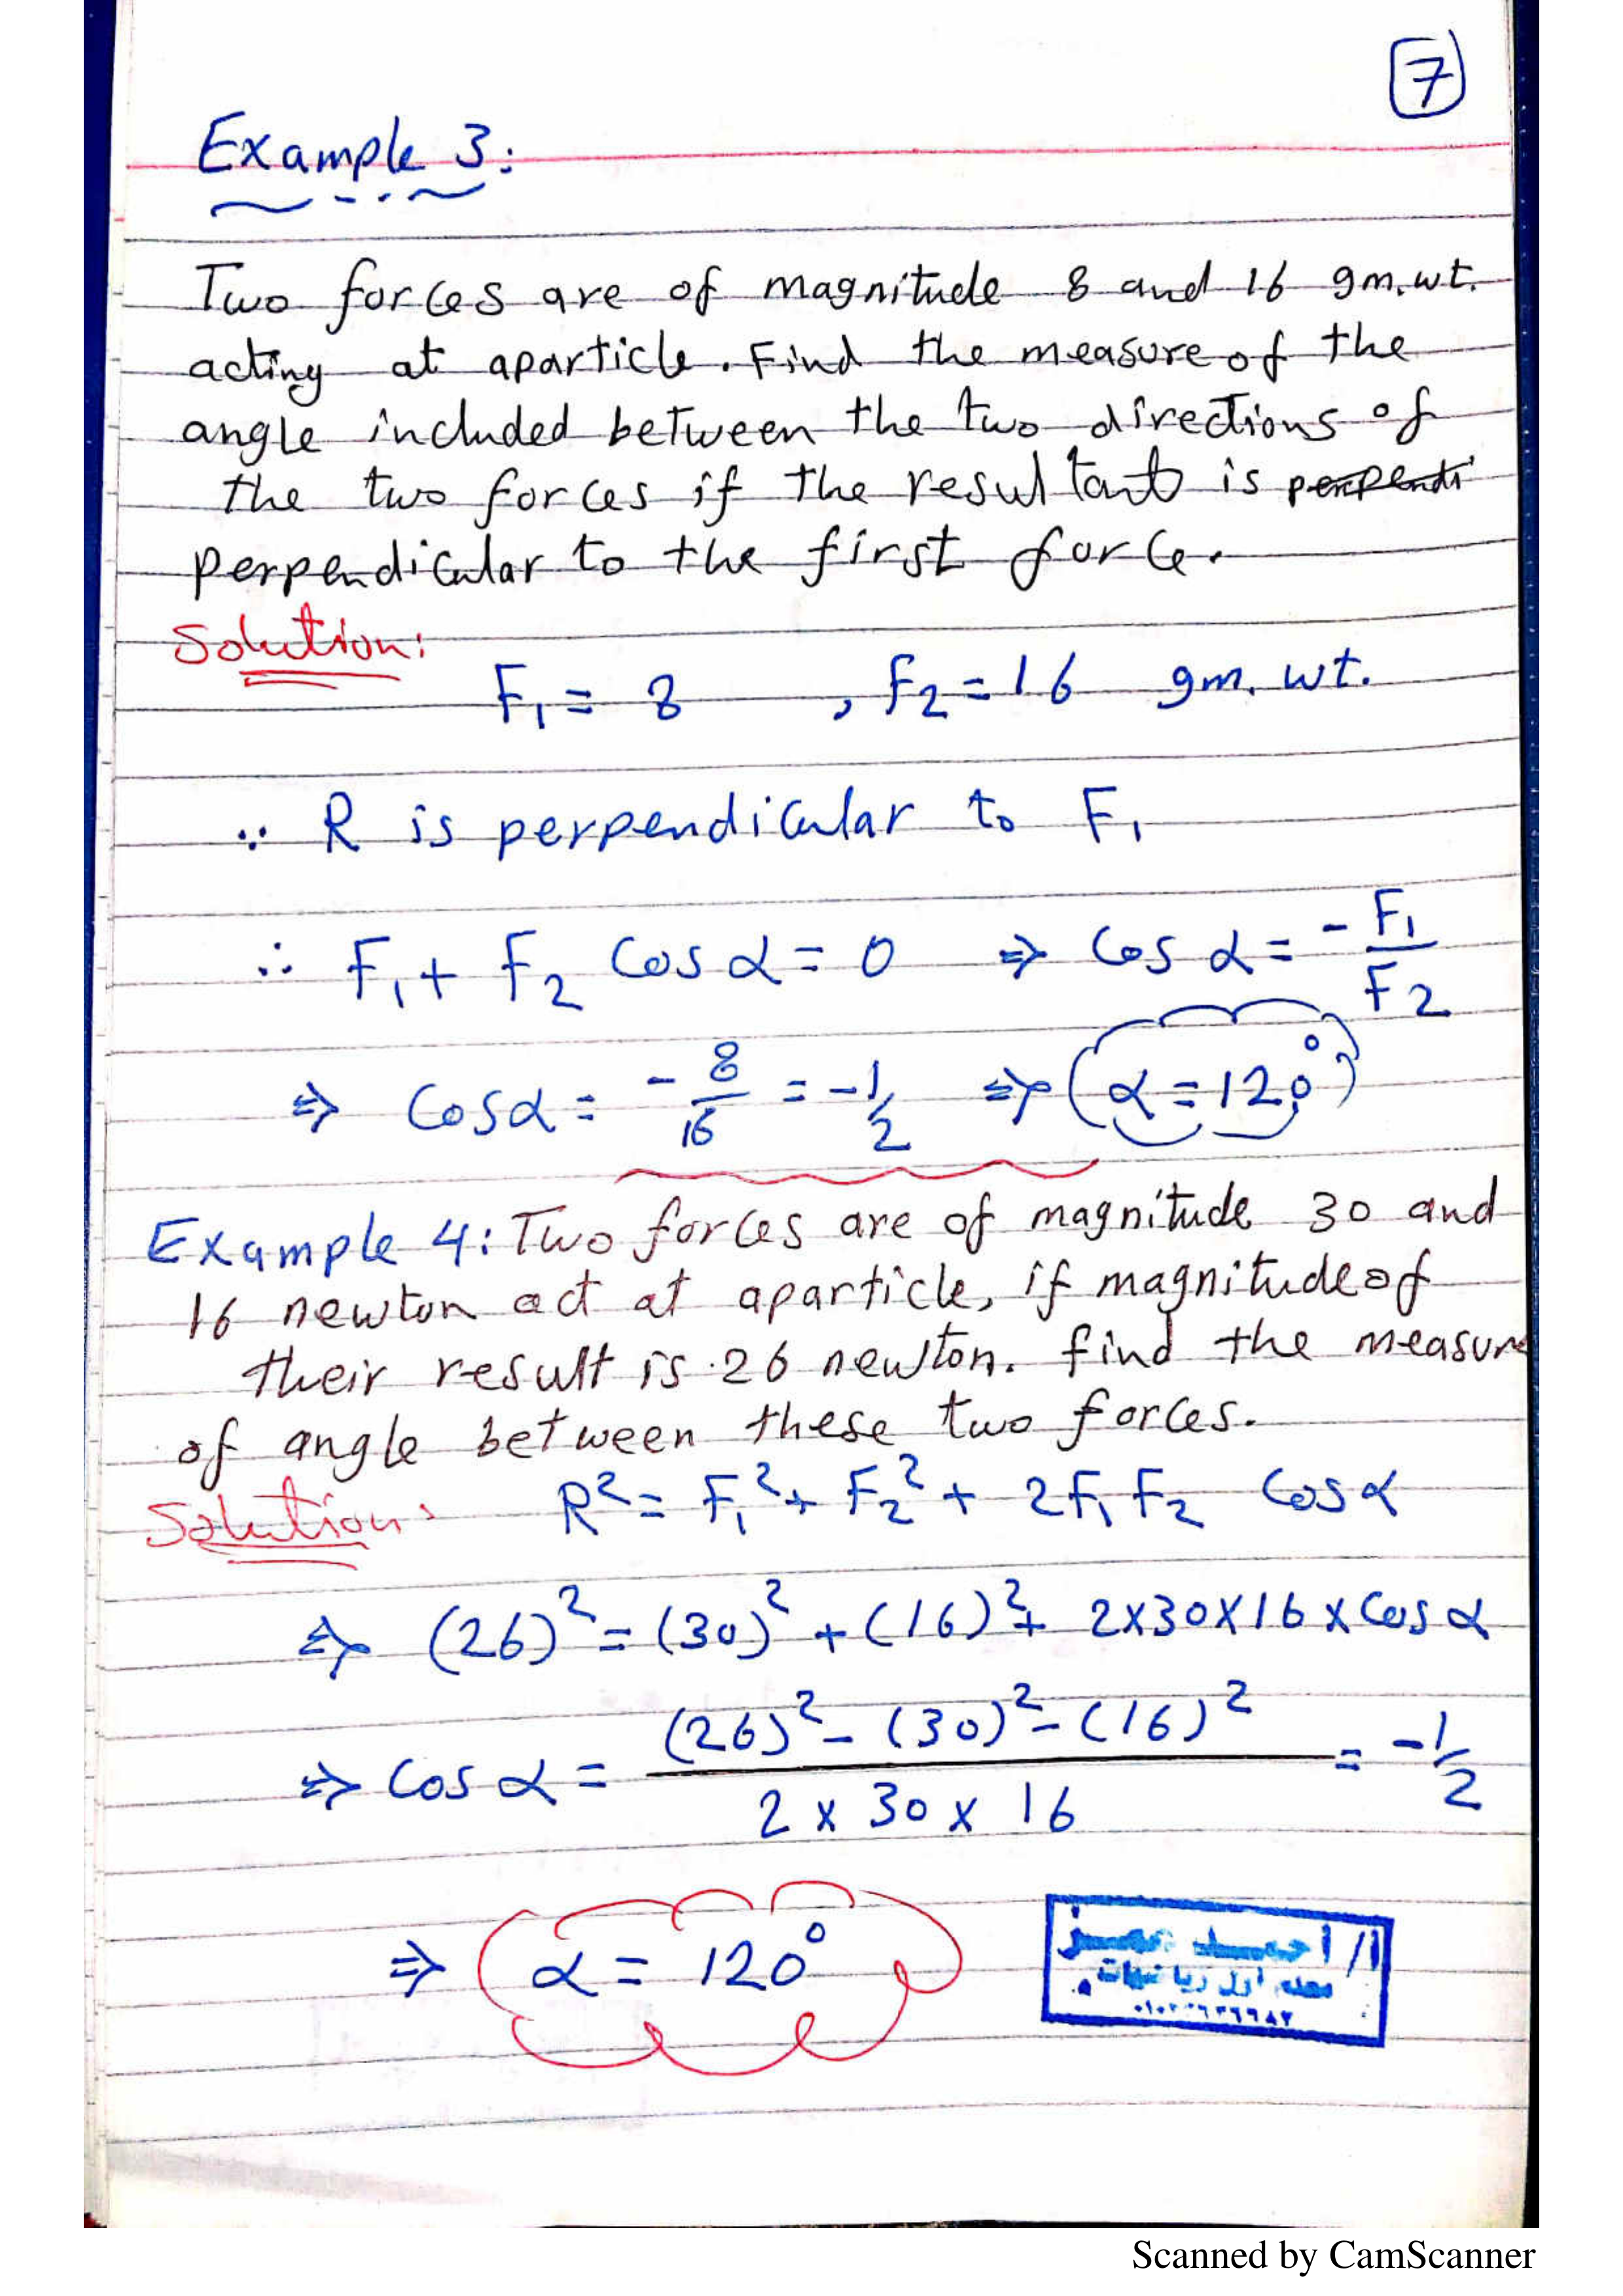 7
Example 3:
Two forces are of magnitude 8 and 16 gm.wt.
acting at aparticle. Find the measure of the
angle included between the two directions of
the two forces if the resultant is perpendi
perpendicular to the first force.
Solution:
F₁ = 8 , F₂ = 16 gm. wt.
∵ R is perpendicular to F₁
∴ F₁ + F₂ Cos α = 0 ⇒ Cos α = - F₁/F₂
⇒ Cos α = - 8/16 = -1/2 ⇒ (α = 120°)
Example 4: Two forces are of magnitude 30 and
16 newton act at aparticle, if magnitude of
their result is 26 newton. find the measure
of angle between these two forces.
Solution: R² = F₁² + F₂² + 2F₁ F₂ Cos α
⇒ (26)² = (30)² + (16)² + 2x30x16 x Cos α
⇒ Cos α = ((26)² - (30)² - (16)²)/(2 x 30 x 16) = -1/2
⇒ α = 120°
أ/ أحمد
معلم أول رياضيات
Scanned by CamScanner